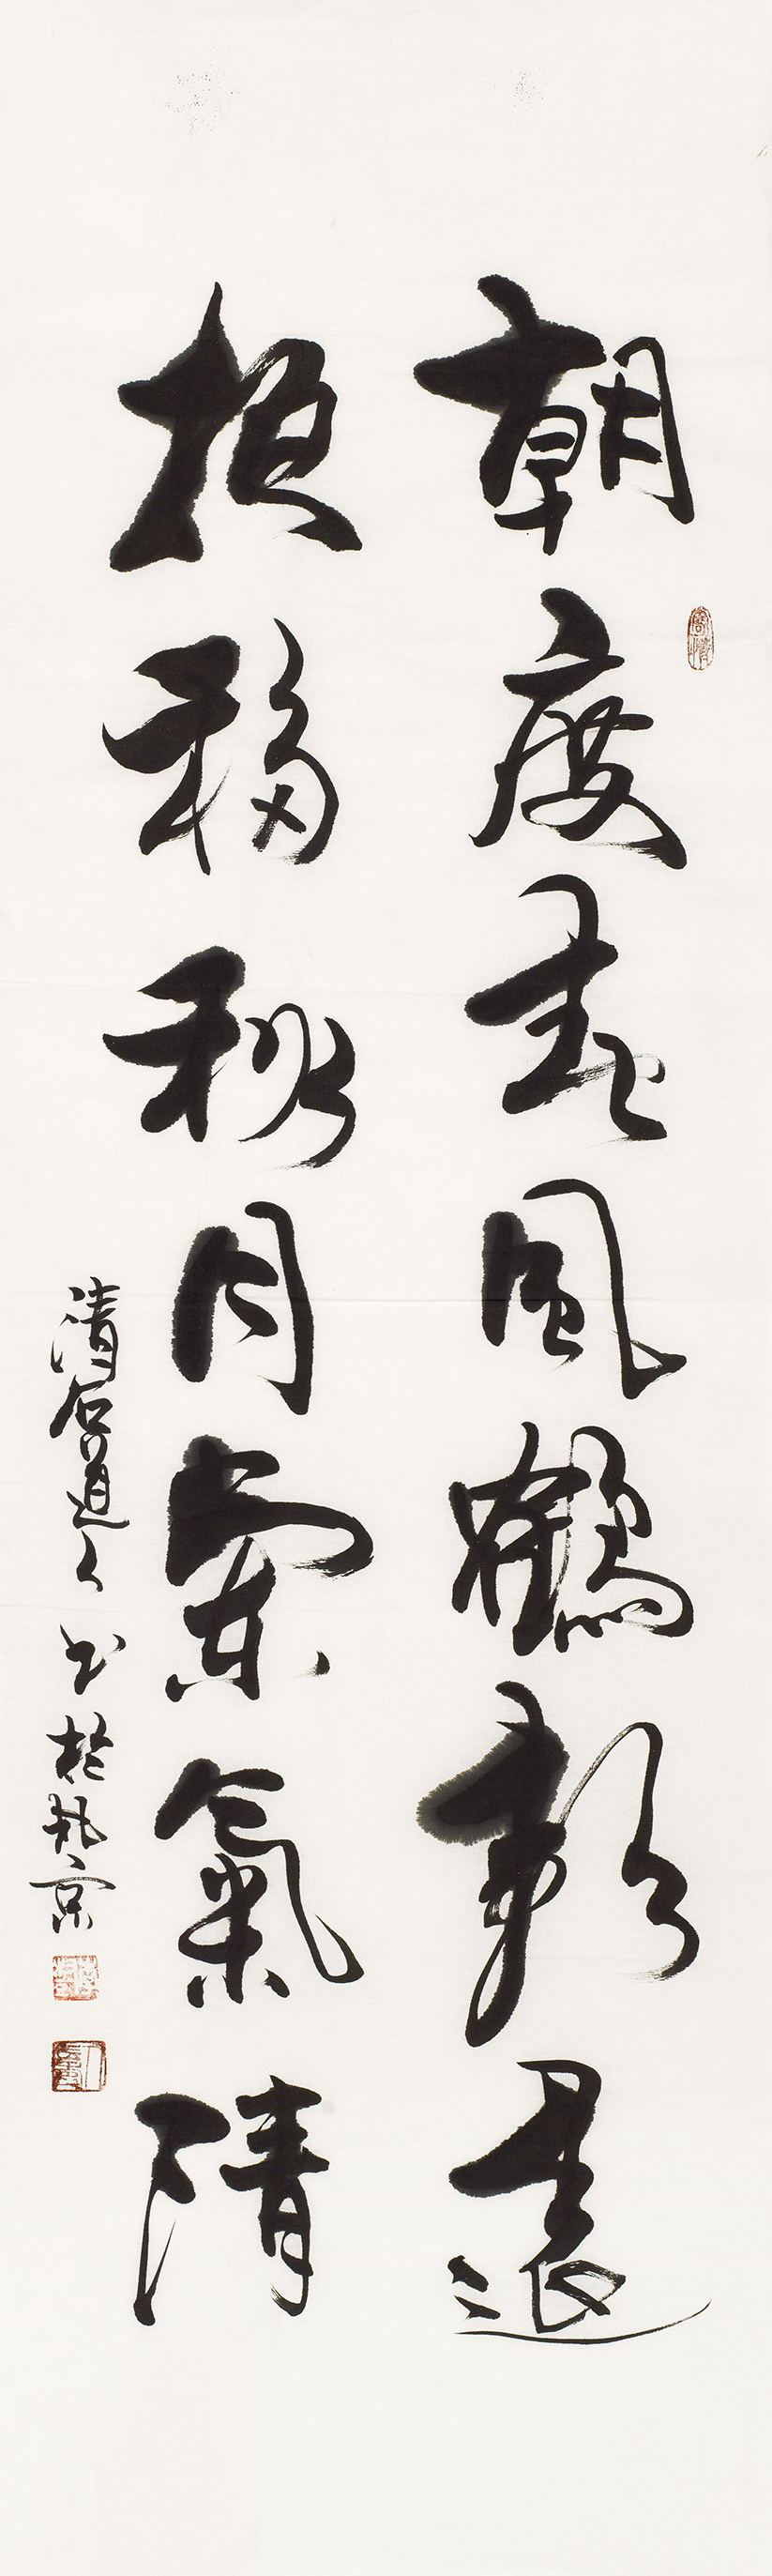 朝度春風鶴影遠
移秋月蘭氣清
清石道人书於北京